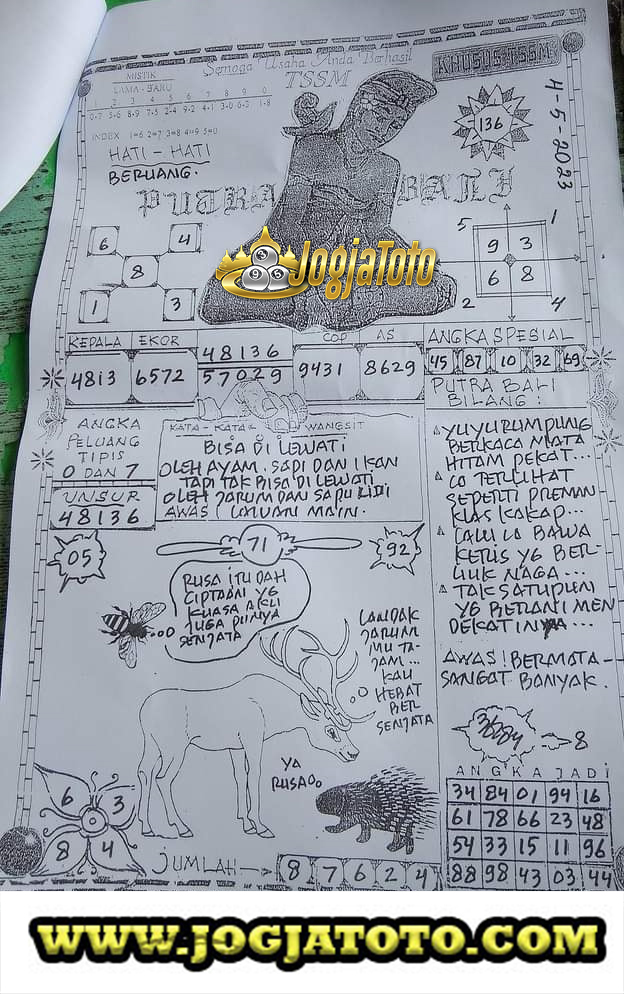 Semoga Usaha Anda Berhasil
TSSM
KHUSUS TSSM
MISTIK
LAMA - BARU
1 2 3 4 5 6 7 8 9 0
0-7 5-6 8-9 7-5 2-4 9-2 4-1 3-0 6-3 1-8
INDEX 1=6 2=7 3=8 4=9 5=0
HATI - HATI
BERUANG.
136
4-5-2023
PUTRA BALI
6 4
8
1 3
5 1
9 3
6 8
2 4
JogjaToto
KEPALA EKOR
4813 6572
48136
57029
COP AS
9431 8629
ANGKA SPESIAL
45 87 10 32 69
PUTRA BALI
BILANG :
ANGKA
PELUANG
TIPIS
0 DAN 7
UNSUR
48136
KATA - KATA - WANGSIT
BISA DI LEWATI
OLEH AYAM. SAPI DAN IKAN
TAPI TAK BISA DI LEWATI
OLEH JARUM DAN SAPU LIDI
AWAS LAWAN MAIN.
YUYU RUMPUNG
BERKACA MATA
HITAM PEKAT...
LO TERLIHAT
SEPERTI PREMAN
KLAS KAKAP...
LALU LO BAWA
KERIS YG BER-
LIUK NAGA...
TAK SATUPUN
YG BERANI MEN
DEKATINYA...
AWAS! BERMATA-
SANGAT BANYAK.
05
71
92
RUSA ITU DAH
CIPTAAN YG
KUASA AKU
JUGA PUNYA
SENJATA
LANDAK
JARUM
MU TA-
JAM...
KAU
HEBAT
BER
SENJATA
YA
RUSA
8
6 3
8 4
JUMLAH
8 7 6 2 4
ANGKA JADI
34 84 01 94 16
61 78 66 23 48
54 33 15 11 96
88 98 43 03 44
WWW.JOGJATOTO.COM